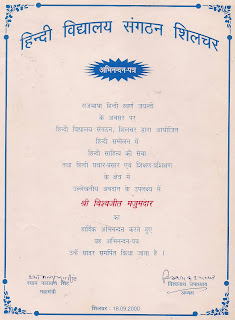 हिन्दी विद्यालय संगठन शिलचर
अभिनन्दन-पत्र
राजभाषा हिन्दी स्वर्ण जयन्ती
के अवसर पर
हिन्दी विद्यालय संगठन, शिलचर द्वारा आयोजित
हिन्दी सम्मेलन में
हिन्दी साहित्य की सेवा
तथा हिन्दी प्रचार-प्रसार एवं शिक्षण-प्रशिक्षण
के क्षेत्र में
उल्लेखनीय अवदान के उपलक्ष्य में
श्री विश्वजीत मजुमदार
का
हार्दिक अभिनन्दन करते हुए
यह अभिनन्दन-पत्र
उन्हें सादर समर्पित किया जाता है ।
सिंह
महामंत्री
अध्यक्ष
शिलचर : 16.09.2000